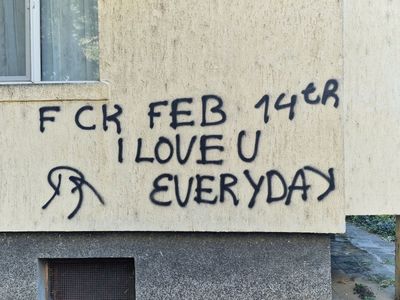 FCK FEB 14th
I LOVE U
EVERYDAY